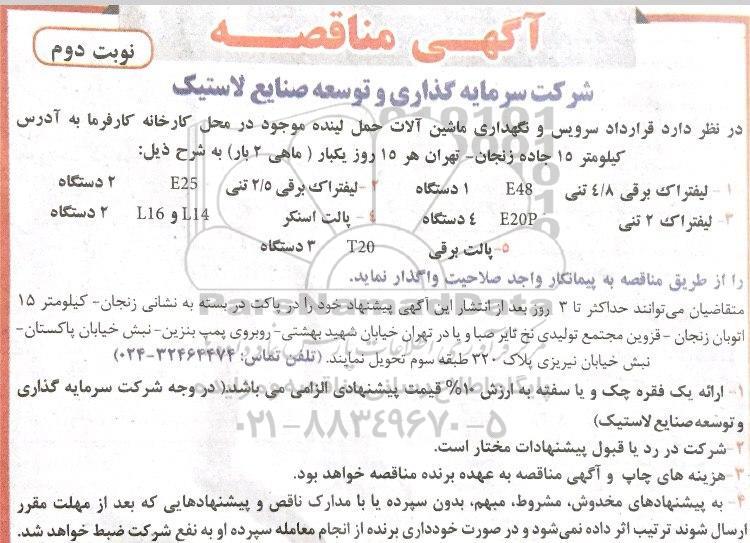 آگهی مناقصه
نوبت دوم
شرکت سرمایه گذاری و توسعه صنایع لاستیک
در نظر دارد قرارداد سرویس و نگهداری ماشین آلات حمل لیندهموجود در محل کارخانه کارفرما به آدرس
کیلومتر ۱۵ جاده زنجان- تهران هر ۱۵ روز یکبار ( ماهی ۲ بار) به شرح ذیل:
۱- لیفتراک برقی ۴/۸ تنی E48 ۱ دستگاه ۲- لیفتراک برقی ۲/۵ تنی E25 ۲ دستگاه
۳- لیفتراک ۲ تنی E20P ٤ دستگاه ٤- پالت استکر L14 و L16 ۲ دستگاه
۵- پالت برقی T20 ۳ دستگاه
را از طریق مناقصه به پیمانکار واجد صلاحیت واگذار نماید.
متقاضیان می‌توانند حداکثر تا ۳ روز بعد از انتشار این آگهی پیشنهاد خود را در پاکت در بسته به نشانی زنجان- کیلومتر ۱۵
اتوبان زنجان - قزوین مجتمع تولیدی نخ تایر صبا و یا در تهران خیابان شهید بهشتی- روبروی پمپ بنزین- نبش خیابان پاکستان-
نبش خیابان نیریزی پلاک ۳۲۰ طبقه سوم تحویل نمایند. (تلفن تماس: ۳۲۴۶۴۴۷۴-۰۲۴)
۱- ارائه یک فقره چک و یا سفته به ارزش ۱۰% قیمت پیشنهادی الزامی می باشد.( در وجه شرکت سرمایه گذاری
و توسعه صنایع لاستیک)
۲- شرکت در رد یا قبول پیشنهادات مختار است.
۳- هزینه های چاپ و آگهی مناقصه به عهده برنده مناقصه خواهد بود.
۴- به پیشنهادهای مخدوش، مشروط، مبهم، بدون سپرده یا با مدارک ناقص و پیشنهادهایی که بعد از مهلت مقرر
ارسال شوند ترتیب اثر داده نمی‌شود و در صورت خودداری برنده از انجام معامله سپرده او به نفع شرکت ضبط خواهد شد.
ParsNamadData
۰۲۱-۸۸۳۴۹۶۷۰-۵